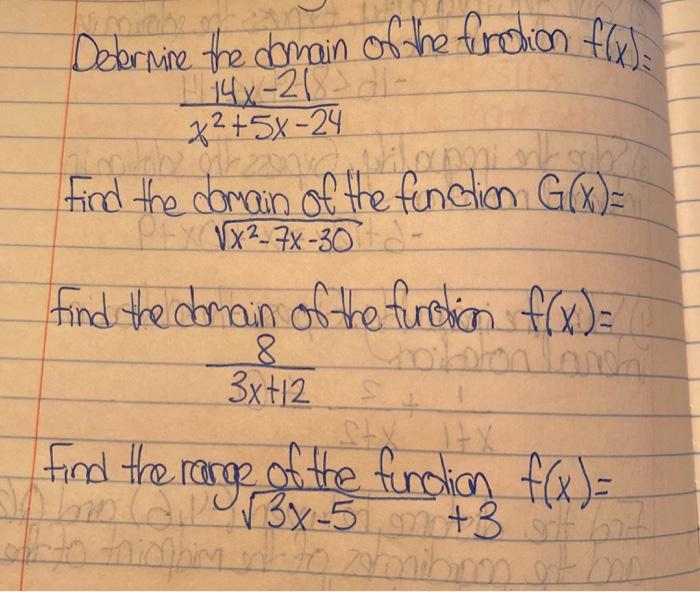 Determine the domain of the function f(x)=
14x-21
x²+5x-24
Find the domain of the function G(x)=
√x²-7x-30
find the domain of the function f(x)=
8
3x+12
find the range of the function f(x)=
√3x-5 +3